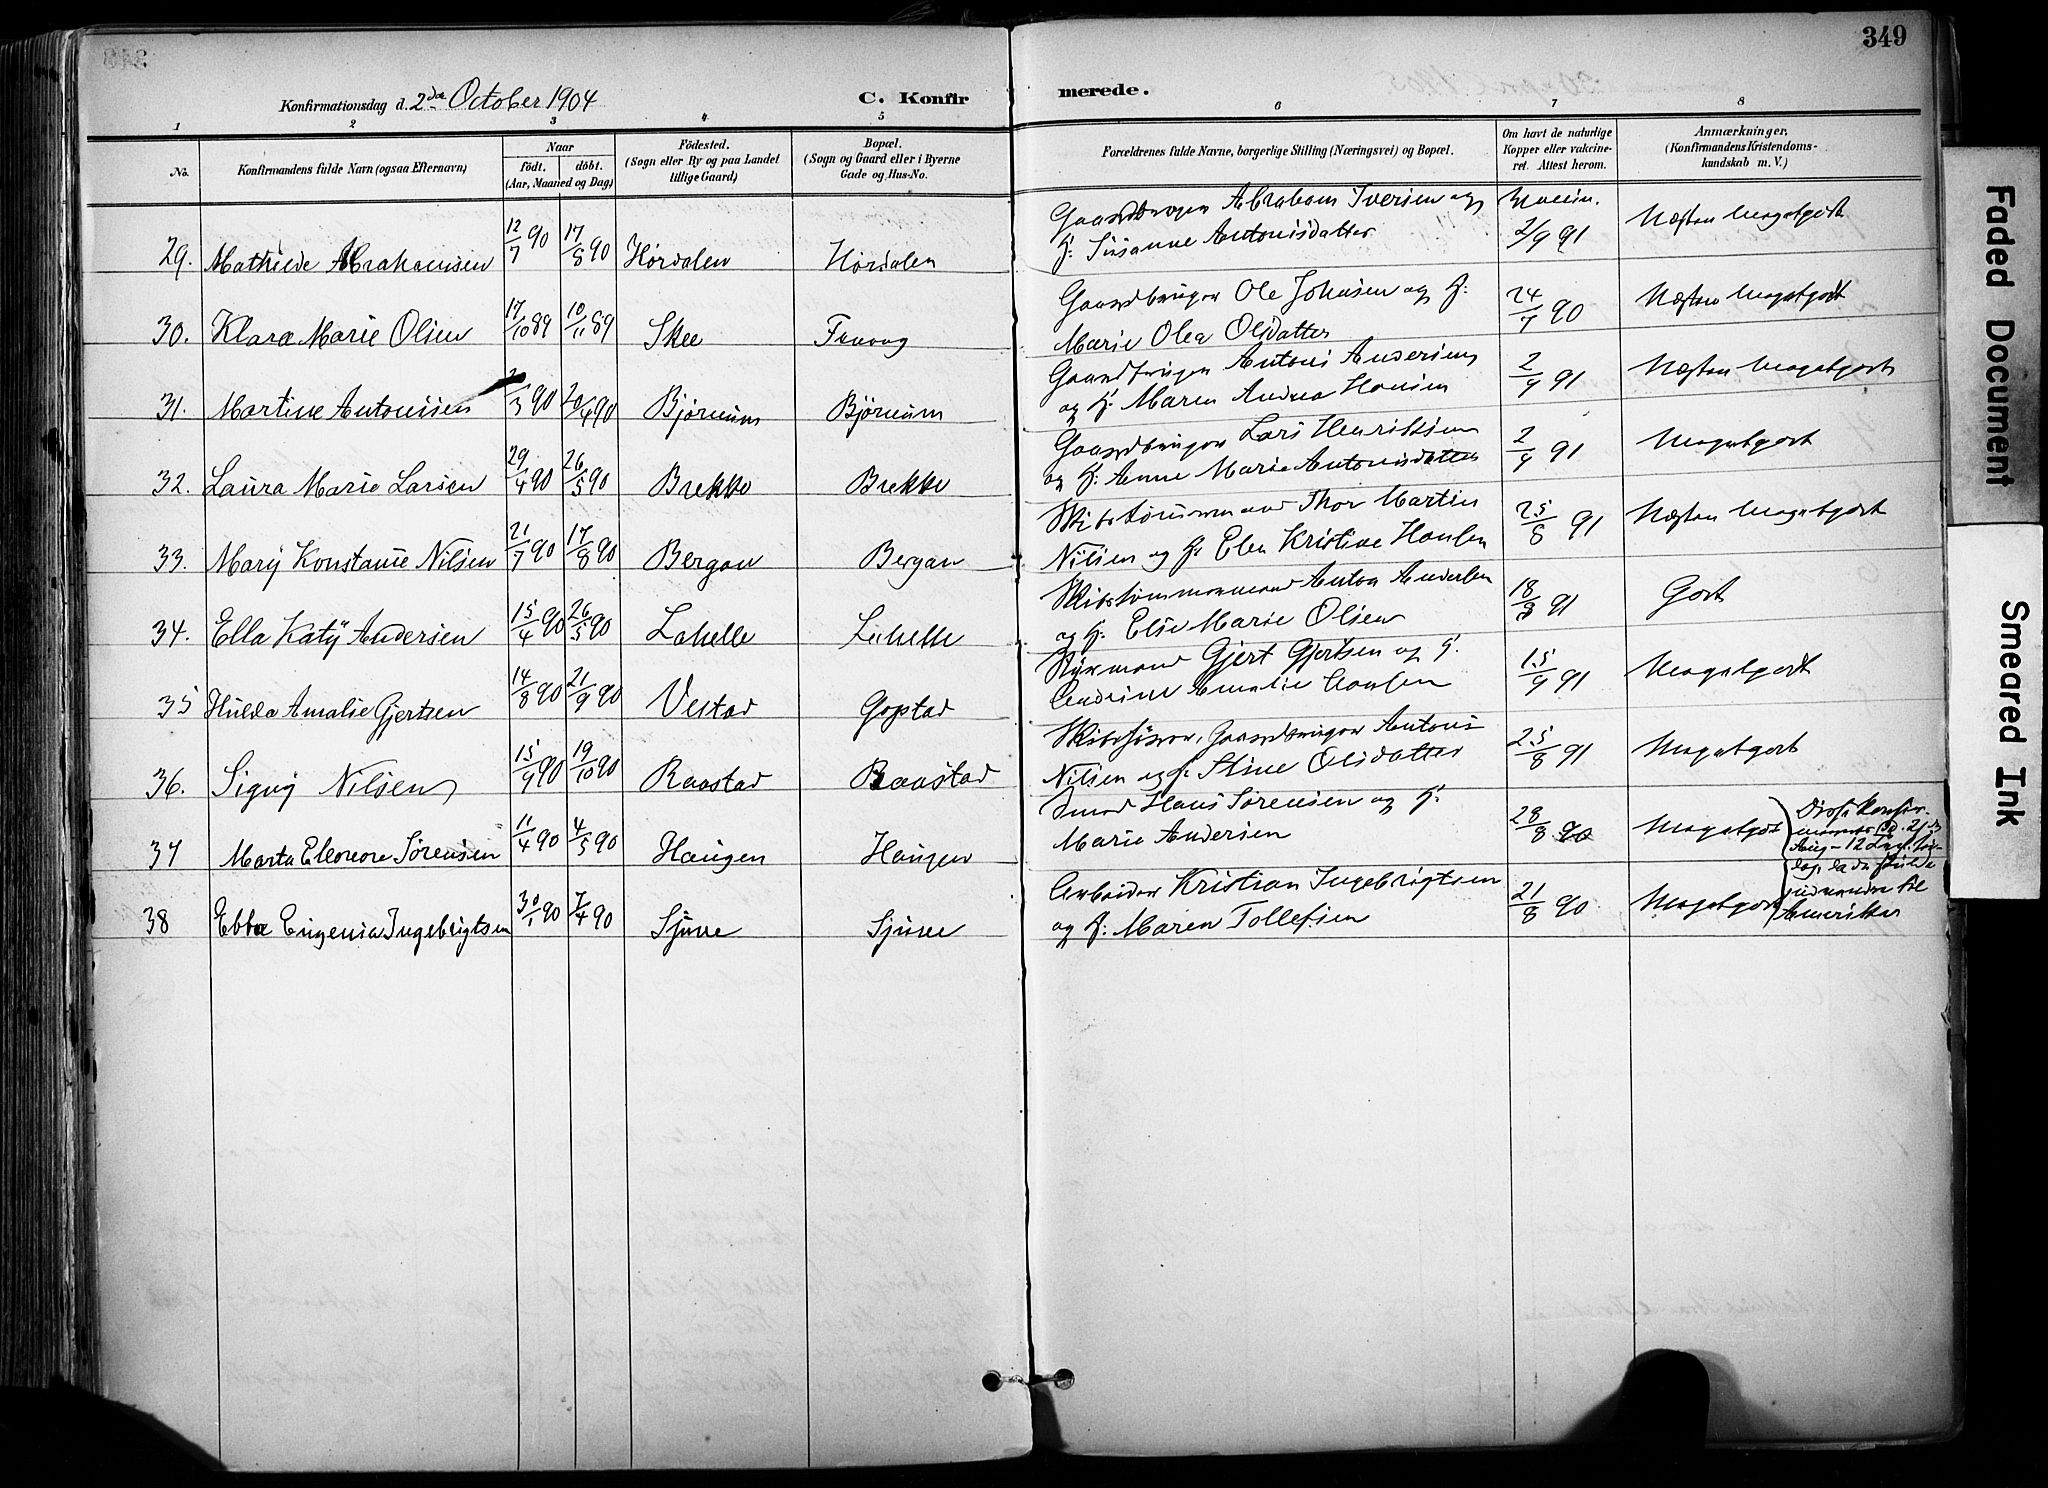 349
Konfirmationsdag d. 2de October 1904
C. Konfirmerede.
1 2 3 4 5 6 7 8
No.
Konfirmandens fulde Navn (ogsaa Efternavn)
Naar
født. døbt.
(Aar, Maaned og Dag)
Fødested.
(Sogn eller By og paa Landet
tillige Gaard)
Bopæl.
(Sogn og Gaard eller i Byerne
Gade og Hus-No.
Forældrenes fulde Navne, borgerlige Stilling (Næringsvei) og Bopæl.
Om havt de naturlige
Kopper eller vakcine-
ret. Attest herom.
Anmærkninger.
(Konfirmandens Kristendoms-
kundskab m. V.)
29. Mathilde Abrahamsen 12/7 90 17/8 90 Hørdalen Hørdalen
Gaardbruger Abraham Iversen og
H: Susanne Antonisdatter
Vaccin.
2/9 91 Næsten Megetgodt
30. Klara Marie Olsen 17/10 89 10/11 89 Skee
Gaardbruger Ole Johnsen og H:
Marie Olea Olsdatter 24/7 90 Næsten Megetgodt
31. Martine Antonisen /3 90 20/4 90 Bjørnum Bjørnum
Gaardbruger Antoni Andersen
og H: Maren Andrea Hansen 2/9 91 Næsten Megetgodt
32. Laura Marie Larsen 29/4 90 26/5 90 Brekke Brekke
Gaardbruger Lars Henriksen
og H: Anne Marie Antonisdatter 2/9 91 Megetgodt
33. Mary Konstanse Nilsen 21/7 90 17/8 90 Bergan Bergan
Skibstømmermand Thor Martin
Nilsen og H: Elen Kristine Hansen 25/8 91 Næsten Megetgodt
34. Ella Katy Andersen 15/4 90 26/5 90 Lahelle Lahelle
Skibstømmermand Anton Andersen
og H: Else Marie Olsen 18/8 91 Godt
35 Hulda Amalie Gjertsen 14/8 90 21/9 90 Vestad Gopstad
Styrmand Gjert Gjertsen og H.
Andrine Amalie 15/9 91 Megetgodt
36. Signy Nilsen 15/9 90 19/10 90 Raastad Raastad
Gaardbruger Antoni
Nilsen og H: Stine Olsdatter 25/8 91 Megetgodt
37 Marta Eleonore Sørensen 11/4 90 4/5 90 Haugen Haugen
Smed Hans Sørensen og H:
Marie Andersen 28/8 90 Megetgodt
38 Ebba Eugenia Ingebrigtsen 30/1 90 7/4 90 Sjuve Sjuve
Arbeider Kristian Ingebrigtsen
og H: Maren Tollefsen 21/8 90 Megetgodt
Disse Konfir-
Aug - 12
dag, da de skulde
til
Amerika
Faded Document
Smeared Ink